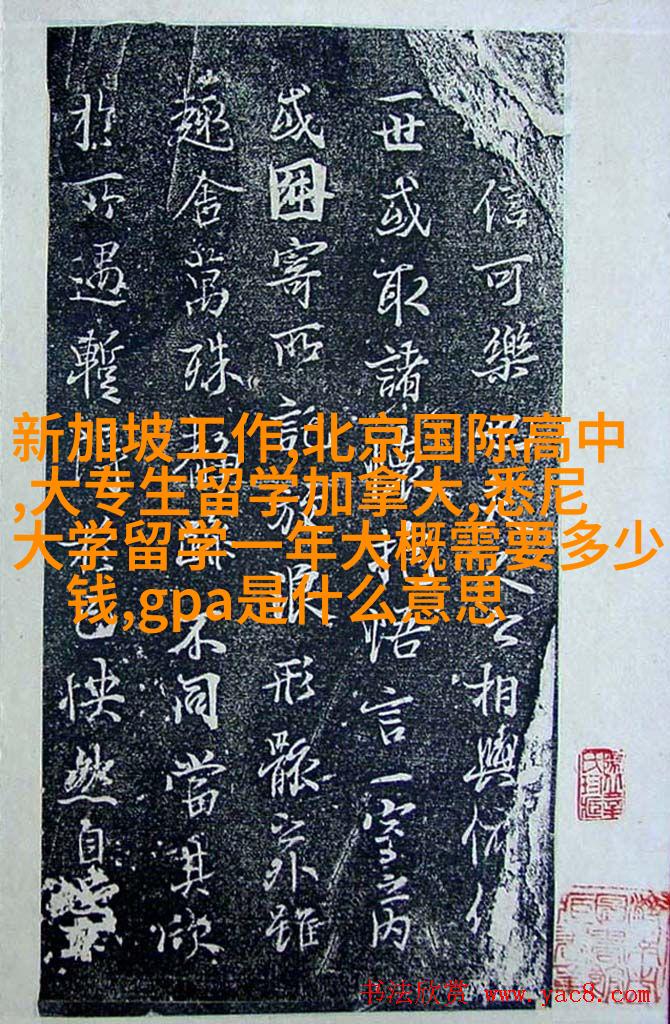 信可樂之相與俯仰
一世或取諸懷抱悟言一室之內
或因寄所託放浪形骸之外雖
趣舍萬殊靜躁不同當其欣
於所遇暫得於己怏然自
新加坡工作,北京国际高中
,大专生留学加拿大,悉尼
大学留学一年大概需要多少
钱,gpa是什么意思
书法欣赏 www.yac8.com